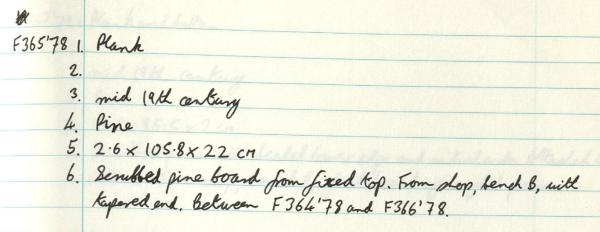 F365'78 1. Plank
2.
3. mid 19th century
4. Pine
5. 2.6 x 105.8 x 22 cm
6. Scrubbed pine board from fixed top. From shop, bench B, with
tapered end. Between F364'78 and F366'78.